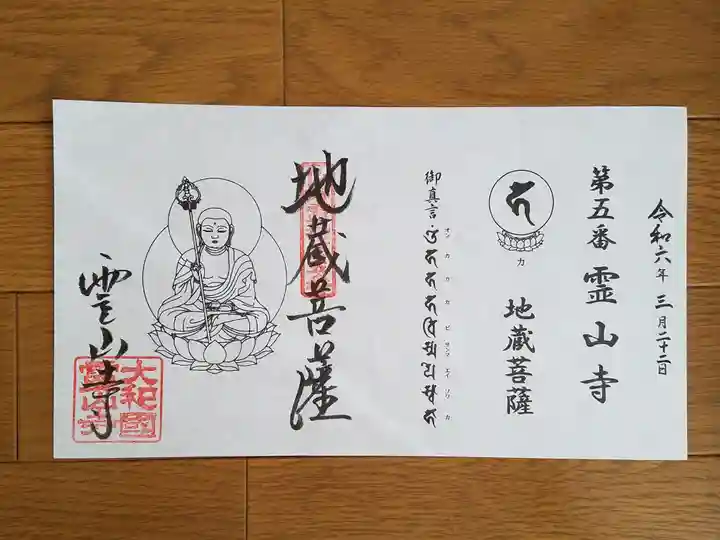 令和六年 三月二十二日
第五番 霊山寺
カ
地蔵菩薩
御真言
オン カ カ カ ビ サン マ エイ ソワ カ
地蔵菩薩
霊山寺
大和國
霊山寺